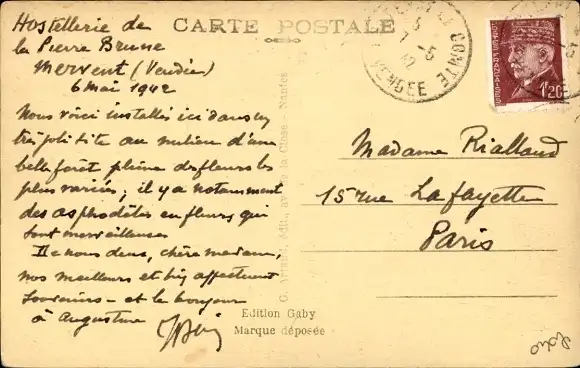 CARTE POSTALE
Hostellerie de
la Pierre Brune
Mervent (Vendée)
6 mai 1942
Nous voici installés ici dans un
très joli site au milieu d'une
belle forêt pleine de fleurs les
plus variées; il y a notamment
des asphodèles en fleurs, qui
sont merveilleuses
De nous deux, chère madame,
nos meilleurs et bien affectueux
souvenirs - et le bonjour
à Augustine
Madame Rialland
15 rue Lafayette
Paris
LE COMTE
VENDEE
POSTES FRANÇAISES
1f20
Edition Gaby
Marque déposée
Nantes